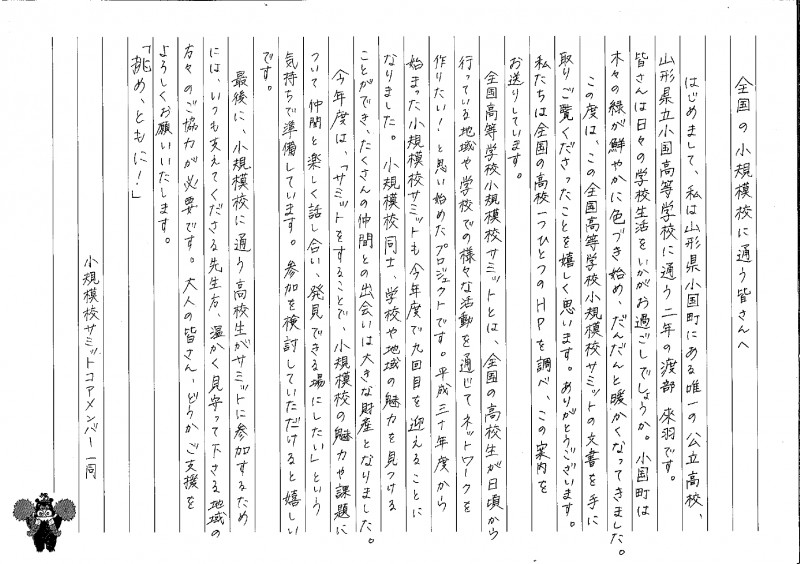 全国の小規模校に通う皆さんへ
はじめまして、私は山形県小国町にある唯一の公立高校、
山形県立小国高等学校に通う二年の渡部 來羽です。
皆さんは日々の学校生活をいかがお過ごしでしょうか。小国町は
木々の緑が鮮やかに色づき始め、だんだんと暖かくなってきました。
この度は、この全国高等学校小規模校サミットの文書を手に
取りご覧くださったことを嬉しく思います。ありがとうございます。
私たちは全国の高校一つひとつのHPを調べ、この案内を
お送りしています。
全国高等学校小規模校サミットとは、全国の高校生が日頃から
行っている地域や学校での様々な活動を通じてネットワークを
作りたい!と思い始めたプロジェクトです。平成三十年度から
始まった小規模校サミットも今年度で九回目を迎えることに
なりました。小規模校同士、学校や地域の魅力を見つける
ことができ、たくさんの仲間との出会いは大きな財産となりました。
今年度は、「サミットをすることで、小規模校の魅力や課題に
ついて仲間と楽しく話し合い、発見できる場にしたい」という
気持ちで準備しています。参加を検討していただけると嬉しい
です。
最後に、小規模校に通う高校生がサミットに参加するため
には、いつも支えてくださる先生方、温かく見守って下さる地域の
方々のご協力が必要です。大人の皆さん、どうかご支援を
よろしくお願いいたします。
「挑め、ともに!」
小規模校サミットコアメンバー一同